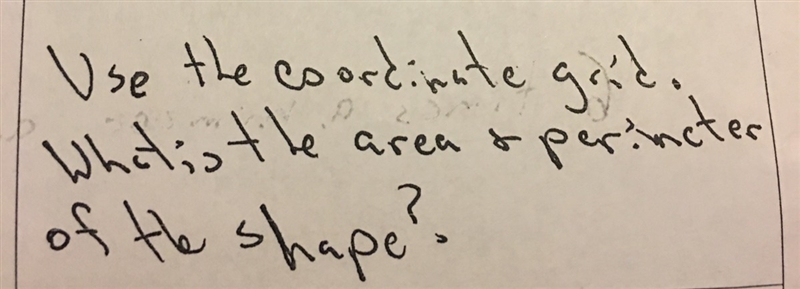 Use the coordinate grid.
What is the area & perimeter
of the shape?